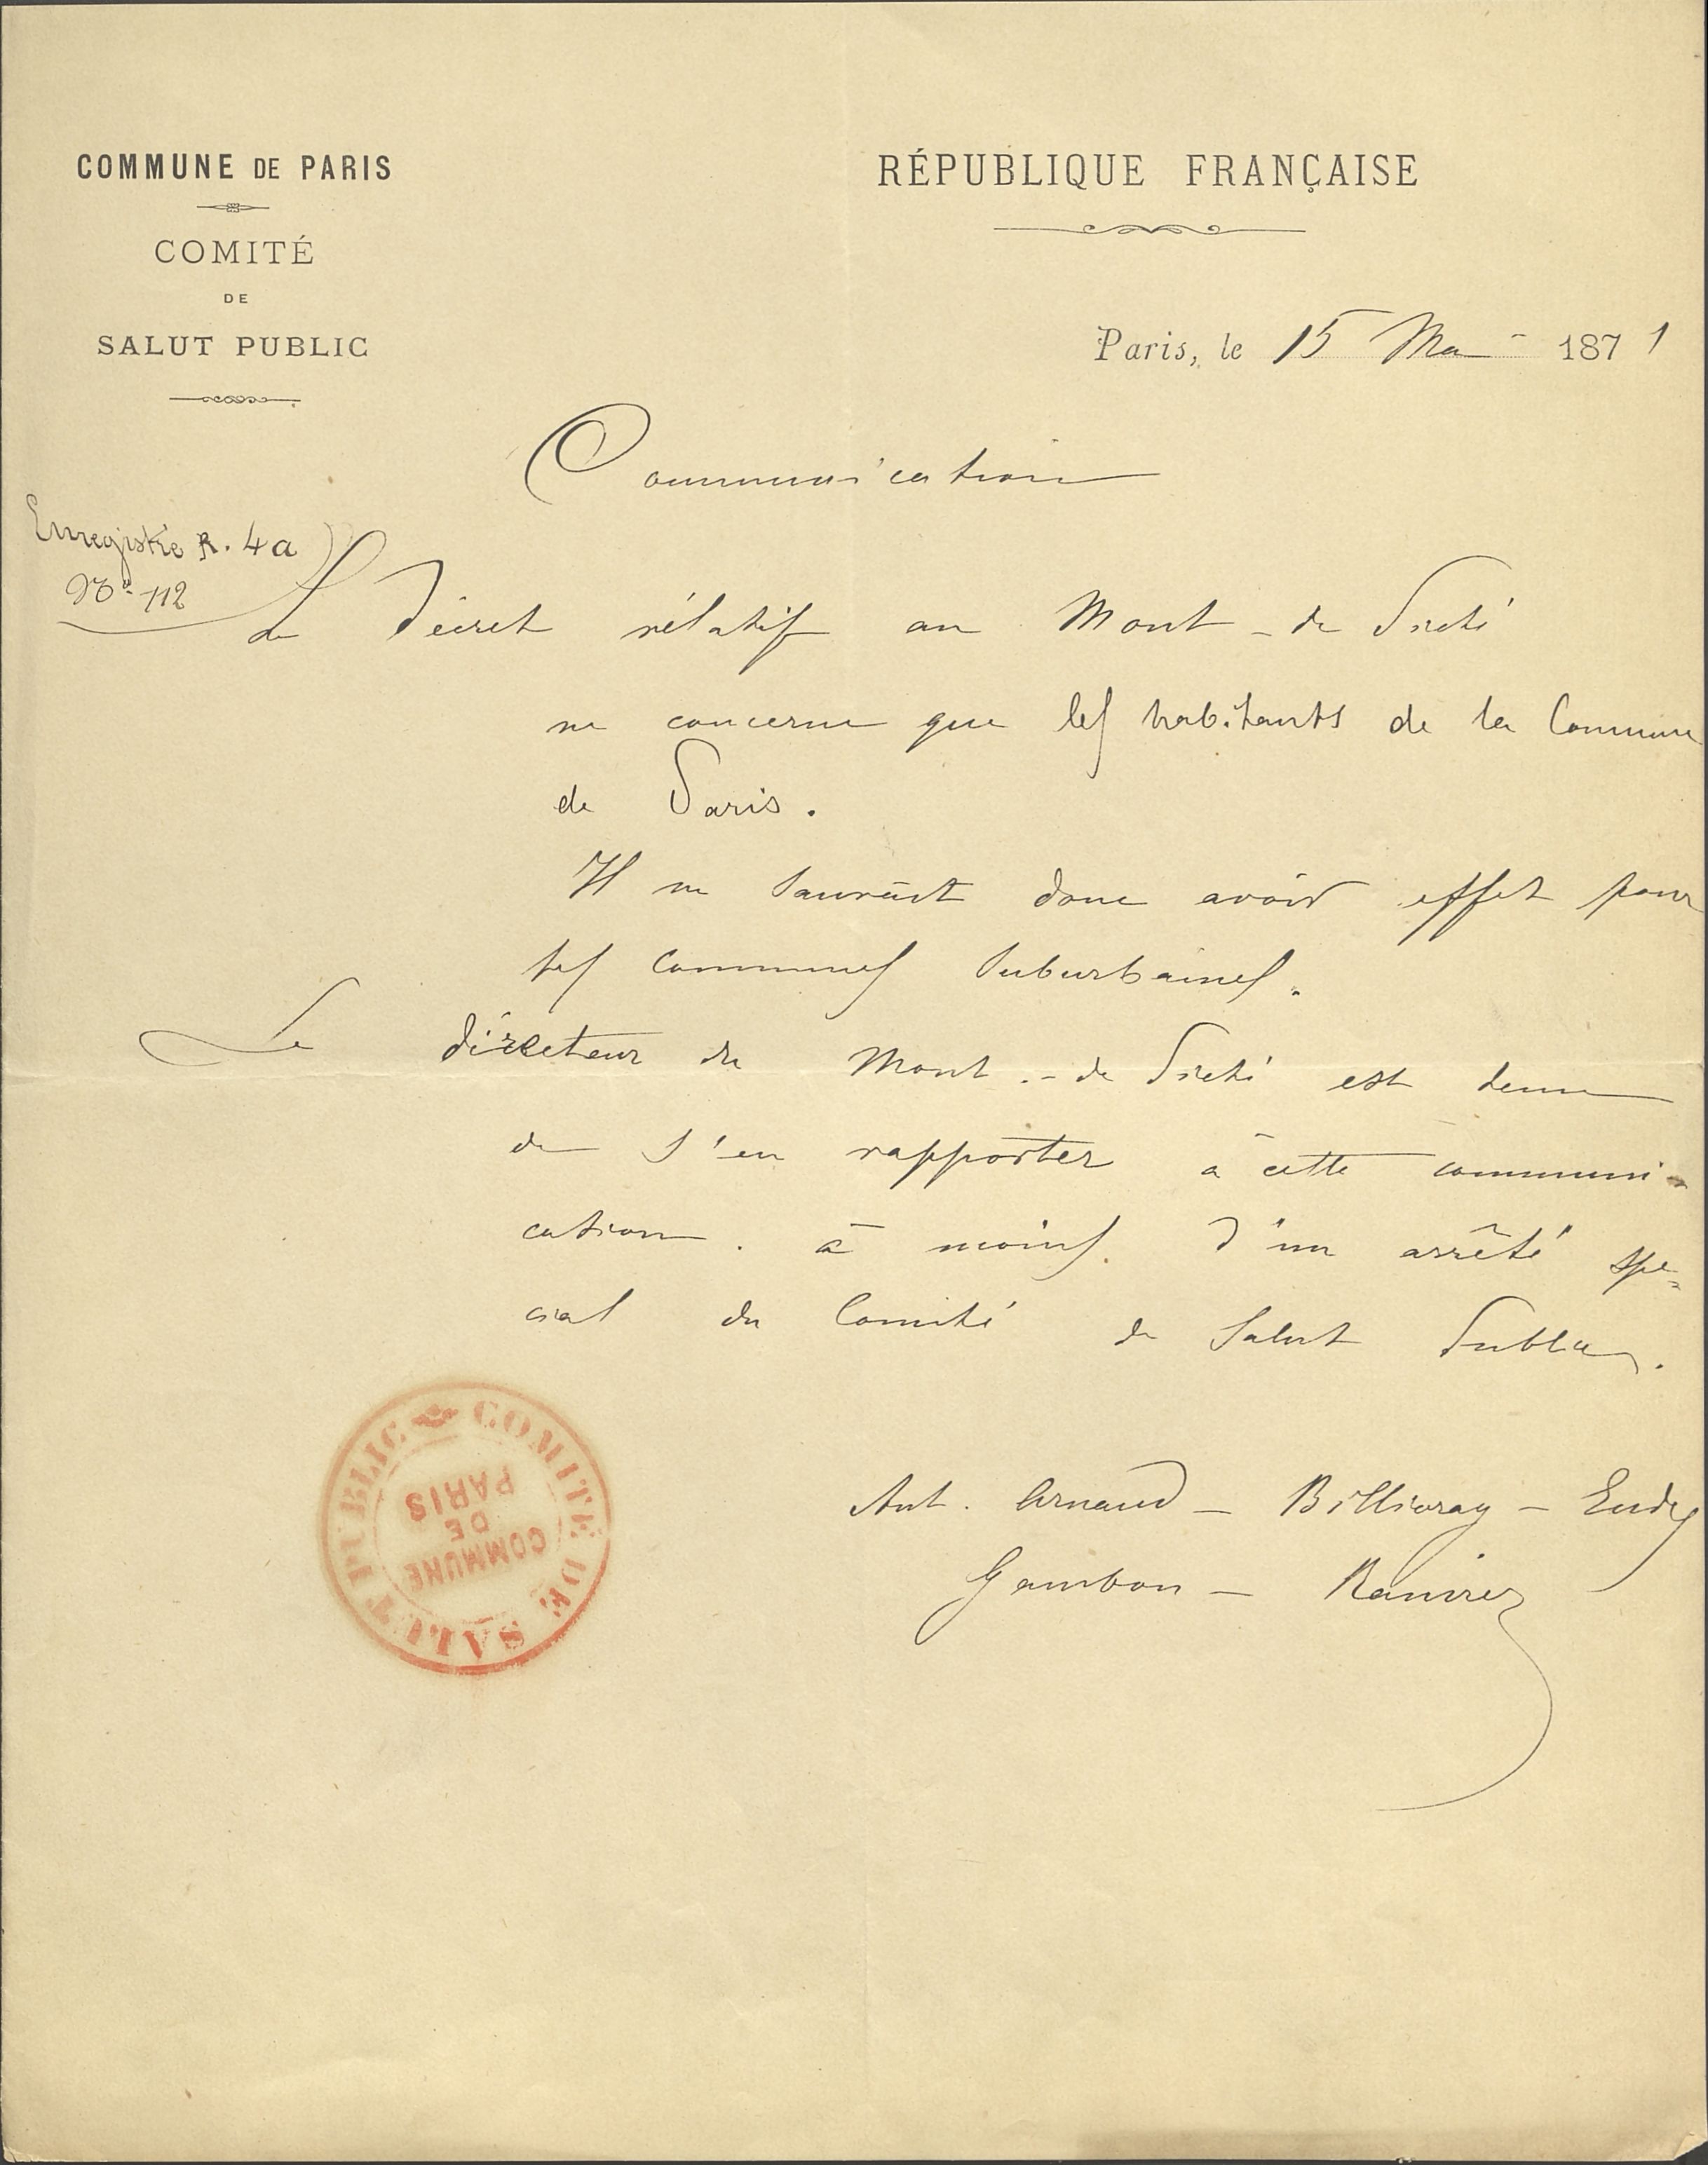 COMMUNE DE PARIS
COMITÉ
DE
SALUT PUBLIC
RÉPUBLIQUE FRANÇAISE
Paris, le 15 Mai 1871
Communication
Enregistré R. 4a
No 112
Le décret rélatif au Mont-de Piété
ne concerne que les habitants de la Commune
de Paris.
Il ne saurait donc avoir effet pour
les communes suburbaines.
Le directeur du Mont-de Piété est tenu
de s'en rapporter à cette communi-
cation. à moins d'un arrêté spé-
cial du Comité de Salut Public.
Ant. Arnaud - Billioray - Eudes
Gambon - Ranvier
COMITÉ DE SALUT PUBLIC
COMMUNE
DE
PARIS